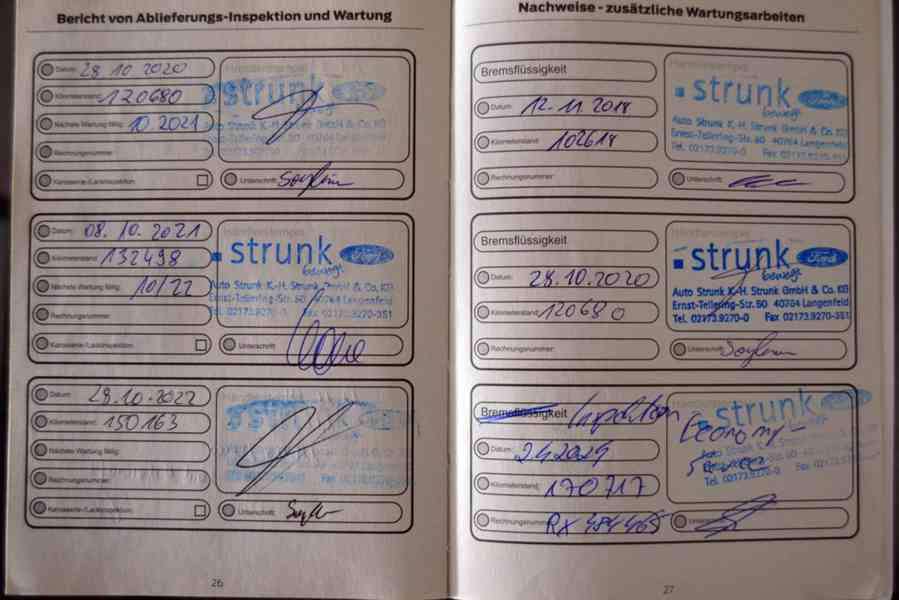 Bericht von Ablieferungs-Inspektion und Wartung
Datum: 28.10.2020
Kilometerstand: 120680
Nächste Wartung fällig: 10.2021
Rechnungsnummer:
Karosserie-/Lackinspektion
Händlerstempel
strunk Ford
Auto Strunk K.-H. Strunk GmbH & Co. KG
Ernst-Tellering-Str. 50 40764 Langenfeld
Unterschrift:
Datum: 08.10.2021
Kilometerstand: 132498
Nächste Wartung fällig: 10/22
Rechnungsnummer:
Karosserie-/Lackinspektion
Händlerstempel
strunk Ford
bewegt
Auto Strunk K.-H. Strunk GmbH & Co. KG
Ernst-Tellering-Str. 50 40764 Langenfeld
Tel. 02173.9270-0 Fax 02173.9270-351
Unterschrift:
Datum: 28.10.2022
Kilometerstand: 150163
Nächste Wartung fällig:
Rechnungsnummer:
Karosserie-/Lackinspektion
Händlerstempel
strunk
Unterschrift:
26
Nachweise - zusätzliche Wartungsarbeiten
Bremsflüssigkeit
Datum: 12.11.2018
Kilometerstand: 102618
Rechnungsnummer:
Händlerstempel
strunk Ford
bewegt
Auto Strunk K.-H. Strunk GmbH & Co. KG
Ernst-Tellering-Str. 50 40764 Langenfeld
Tel. 02173.9270-0 Fax 02173.9270-351
Unterschrift:
Bremsflüssigkeit
Datum: 28.10.2020
Kilometerstand: 120680
Rechnungsnummer:
Händlerstempel
strunk Ford
bewegt
Auto Strunk K.-H. Strunk GmbH & Co. KG
Ernst-Tellering-Str. 50 40764 Langenfeld
Tel. 02173.9270-0 Fax 02173.9270-351
Unterschrift:
Bremsflüssigkeit Inspektion
Economy-
Service
Datum: 2.4.2024
Kilometerstand: 170717
Rechnungsnummer: RX 484465
strunk
Auto Strunk K.-H. Strunk GmbH & Co. KG
40764 Langenfeld
Tel. 02173.9270-0 Fax 02173.9270-351
Unterschrift:
27